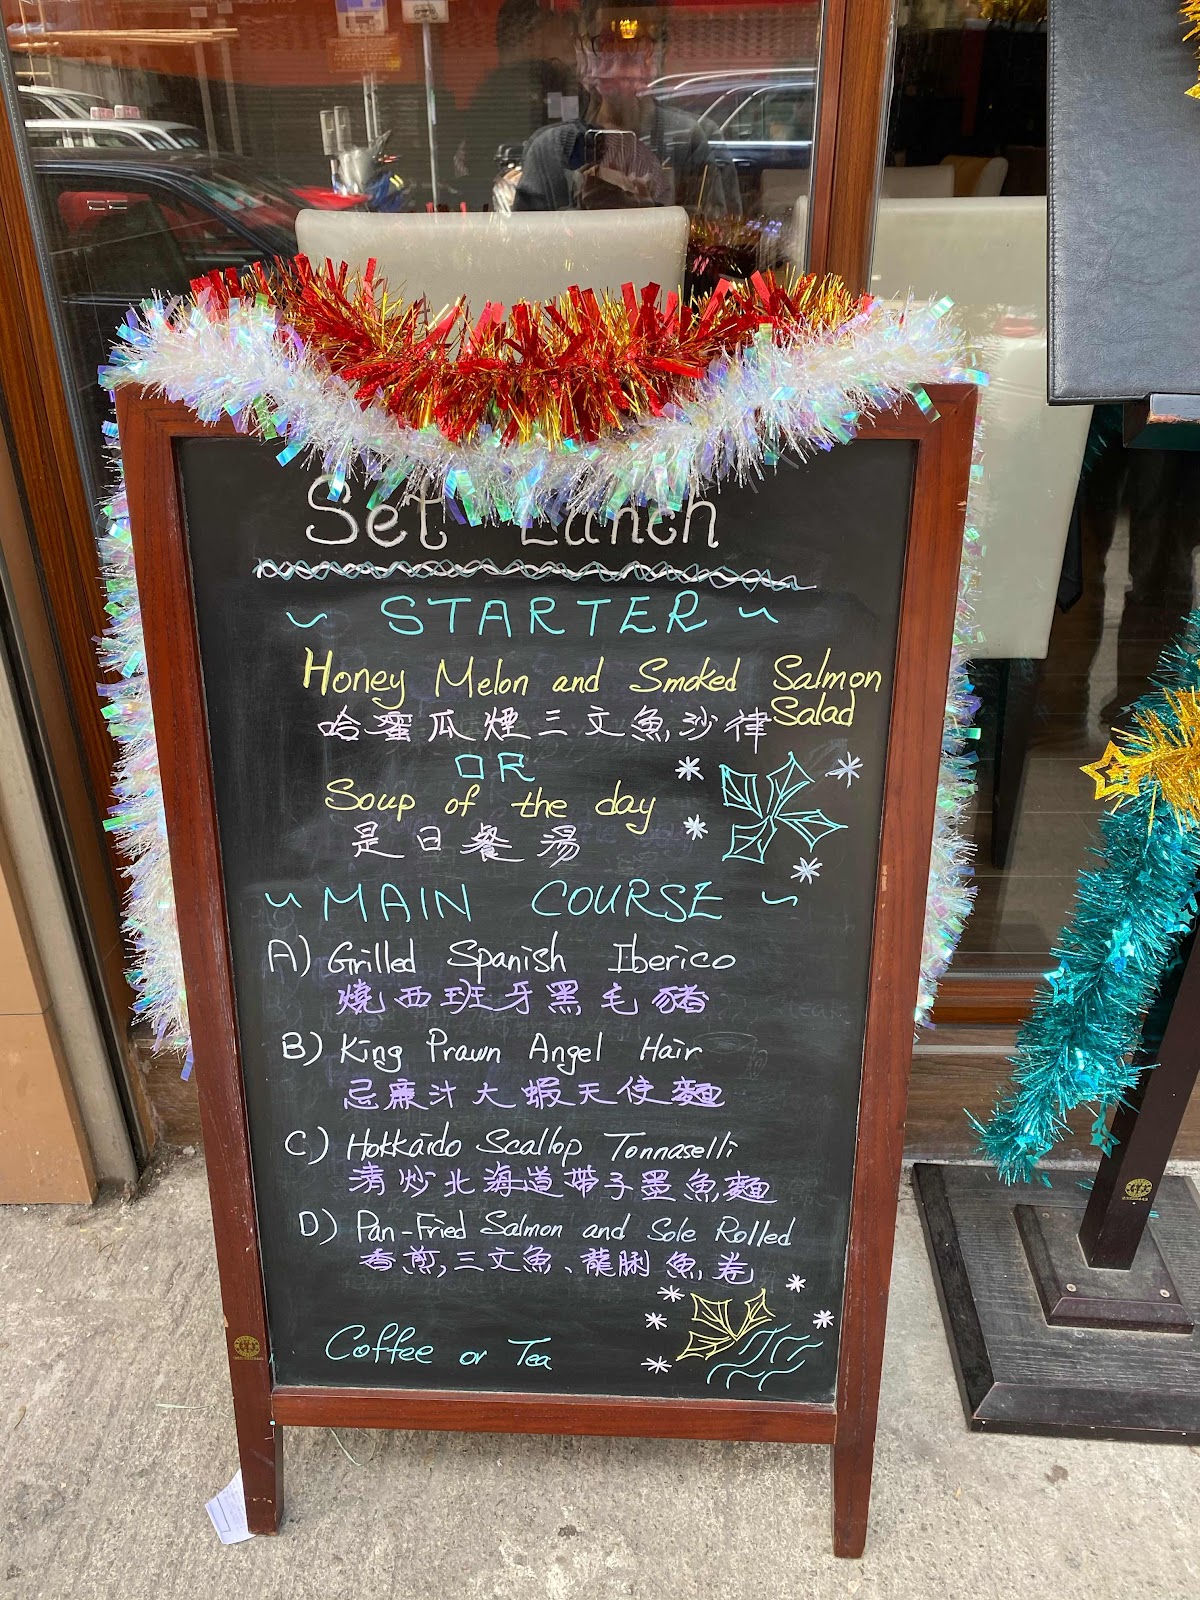 Set Lunch
~ STARTER ~
Honey Melon and Smoked Salmon
Salad
哈蜜瓜煙三文魚沙律
OR
Soup of the day
是日餐湯
~ MAIN COURSE ~
A) Grilled Spanish Iberico
燒西班牙黑毛豬
B) King Prawn Angel Hair
忌廉汁大蝦天使麵
C) Hokkaido Scallop Tonnaselli
清炒北海道帶子墨魚麵
D) Pan-Fried Salmon and Sole Rolled
香煎三文魚、龍脷魚卷
Coffee or Tea